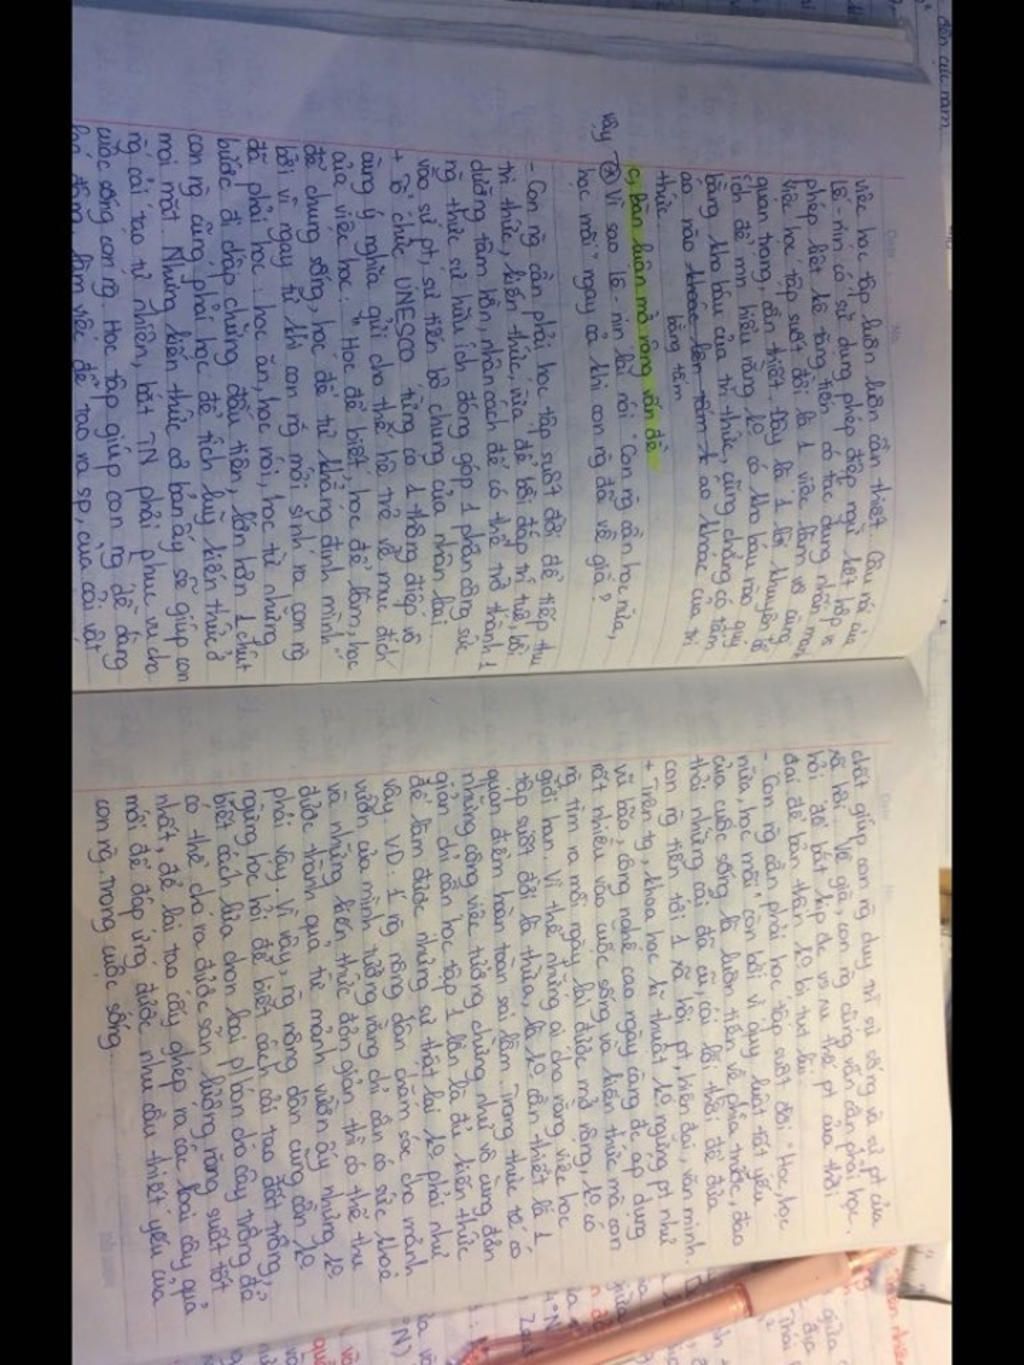 việc học tập luôn luôn cần thiết. Câu nói của
Lê-nin có sử dụng phép điệp ngữ kết hợp vs
phép liệt kê tăng tiến có tác dụng nhấn mạnh
việc học tập suốt đời là 1 việc làm vô cùng
quan trọng, cần thiết. Đây là 1 lời khuyên bổ
ích để mn hiểu rằng ko có kho báu nào quý
bằng kho báu của tri thức, cũng chẳng có tấm
áo nào bằng tấm áo khoác của tri
thức.
c, Bàn luận mở rộng vấn đề
Vậy Vì sao Lê-nin lại nói "Con ng cần học nữa,
học mãi" ngay cả khi con ng đã về già?
- Con ng cần phải học tập suốt đời để tiếp thu
tri thức, kiến thức, vừa để bồi đắp trí tuệ, bồi
dưỡng tâm hồn, nhân cách để có thể trở thành 1
ng thực sự hữu ích đóng góp 1 phần công sức
vào sự pt, sự tiến bộ chung của nhân loại.
+ Tổ chức UNESCO từng có 1 thông điệp vô
cùng ý nghĩa gửi cho thế hệ trẻ về mục đích
của việc học: "Học để biết, học để làm, học
để chung sống, học để tự khẳng định mình"
bởi vì ngay từ khi con ng mới sinh ra con ng
đã phải học: học ăn, học nói, học từ những
bước đi chập chững đầu tiên, lớn hơn 1 chút
con ng cũng phải học để tích luỹ kiến thức ở
mọi mặt. Những kiến thức cơ bản ấy sẽ giúp con
ng cải tạo tự nhiên, bắt TN phải phục vụ cho
cuộc sống con ng. Học tập giúp con ng dễ dàng
lao động, làm việc để tạo ra sp, của cải vật
chất giúp con ng duy trì sự sống và sự pt của
xã hội. Về già, con ng cũng vẫn cần phải học,
hỏi để bắt kịp đc vs xu thế pt của thời
đại để bản thân ko bị tụt lùi.
- Con ng cần phải học tập suốt đời "Học, học
nữa, học mãi" còn bởi vì quy luật tất yếu
của cuộc sống là luôn tiến về phía trước, đào
thải những cái đã cũ, cái lỗi thời để đưa
con ng tiến tới 1 xã hội pt, hiện đại, văn minh.
+ Trên tg, khoa học kĩ thuật ko ngừng pt như
vũ bão, công nghệ cao ngày càng đc áp dụng
rất nhiều vào cuộc sống và kiến thức mà con
ng tìm ra mỗi ngày lại được mở rộng, ko có
giới hạn. Vì thế những ai cho rằng việc học
tập suốt đời là thừa, là ko cần thiết là 1
quan điểm hoàn toàn sai lầm. Trong thực tế có
những công việc tưởng chừng như vô cùng đơn
giản chỉ cần học tập 1 lần là đủ kiến thức
để làm được nhưng sự thật lại ko phải như
vậy. VD: 1 ng nông dân chăm sóc cho mảnh
vườn của mình tưởng rằng chỉ cần có sức khoẻ
và những kiến thức đơn giản thì có thể thu
được thành quả từ mảnh vườn ấy nhưng ko
phải vậy. Vì vậy, ng nông dân cũng cần ko
ngừng học hỏi để biết cách cải tạo đất trồng,
biết cách lựa chọn loại phân cho cây trồng để
có thể cho ra được sản lượng, năng suất tốt
nhất, để lai tạo cấy ghép ra các loại cây quả
mới để đáp ứng được nhu cầu thiết yếu của
con ng trong cuộc sống.